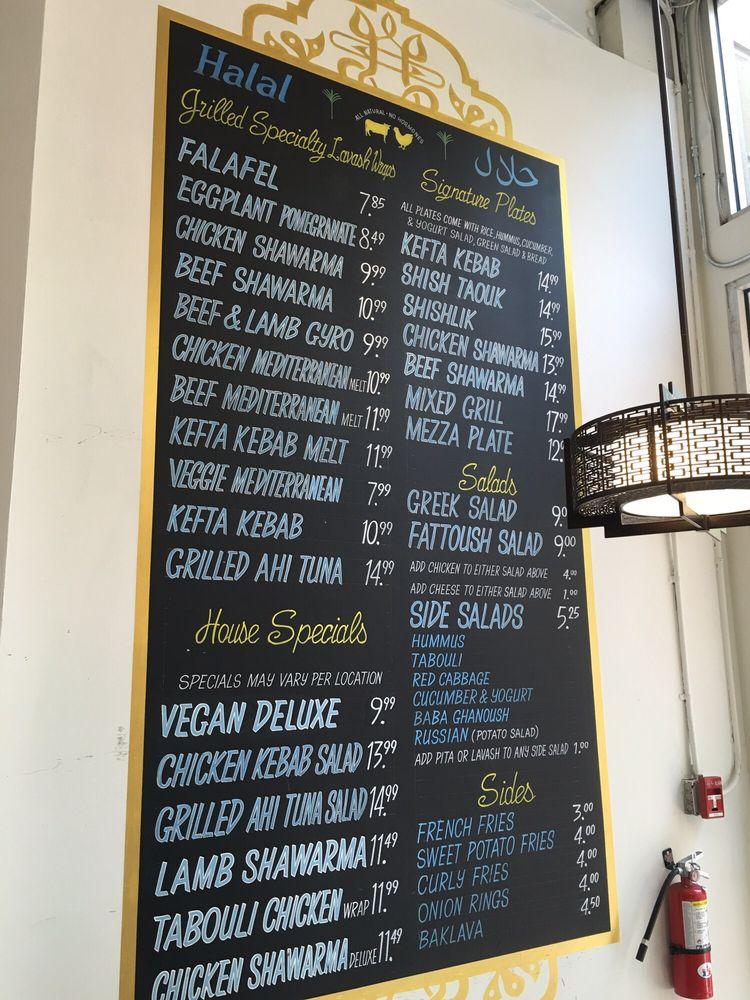 Halal
Grilled Specialty Lavash Wraps
FALAFEL 7.85
EGGPLANT POMEGRANATE 8.49
CHICKEN SHAWARMA 9.99
BEEF SHAWARMA 10.99
BEEF & LAMB GYRO 9.99
CHICKEN MEDITERRANEAN MELT 10.99
BEEF MEDITERRANEAN MELT 11.99
KEFTA KEBAB MELT 11.99
VEGGIE MEDITERRANEAN 7.99
KEFTA KEBAB 10.99
GRILLED AHI TUNA 14.99
House Specials
SPECIALS MAY VARY PER LOCATION
VEGAN DELUXE 9.99
CHICKEN KEBAB SALAD 13.99
GRILLED AHI TUNA SALAD 14.99
LAMB SHAWARMA 11.49
TABOULI CHICKEN WRAP 11.99
CHICKEN SHAWARMA DELUXE 11.49
ALL NATURAL • NO HORMONES
حلال
Signature Plates
ALL PLATES COME WITH RICE, HUMMUS, CUCUMBER,
& YOGURT SALAD, GREEN SALAD & BREAD
KEFTA KEBAB 14.99
SHISH TAOUK 14.99
SHISHLIK 15.99
CHICKEN SHAWARMA 13.99
BEEF SHAWARMA 14.99
MIXED GRILL 17.99
MEZZA PLATE 12.
Salads
GREEK SALAD 9.0
FATTOUSH SALAD 9.00
ADD CHICKEN TO EITHER SALAD ABOVE 4.00
ADD CHEESE TO EITHER SALAD ABOVE 1.00
SIDE SALADS 5.25
HUMMUS
TABOULI
RED CABBAGE
CUCUMBER & YOGURT
BABA GHANOUSH
RUSSIAN (POTATO SALAD)
ADD PITA OR LAVASH TO ANY SIDE SALAD 1.00
Sides
FRENCH FRIES 3.00
SWEET POTATO FRIES 4.00
CURLY FRIES 4.00
ONION RINGS 4.00
BAKLAVA 4.50